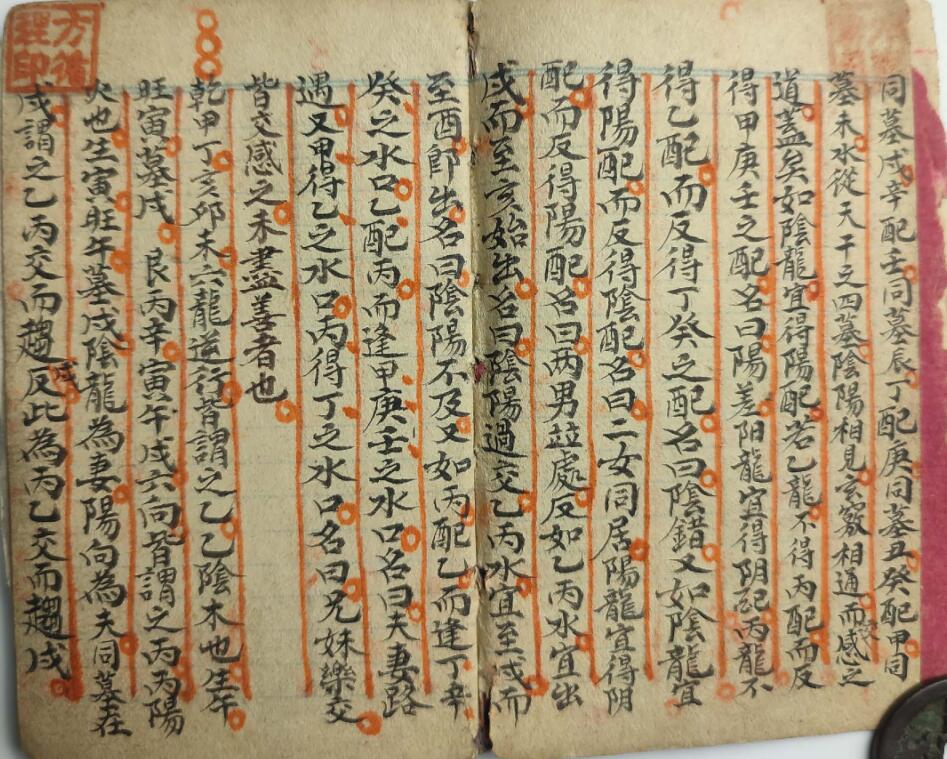 同墓戌辛配壬同墓辰丁配庚同墓丑癸配甲同
墓未水從天干之四墓陰陽相見玄竅相通而交感之
道盡矣如陰龍宜得陽配若乙龍不得丙配而反
得甲庚壬之配名曰陽差阳龍宜得阴配丙龍不
得乙配而反得丁癸之配名曰陰錯又如陰龍宜
得陽配而反得陰配名曰二女同居陽龍宜得阴
配而反得陽配名曰两男並處反如乙丙水宜出
戌而至亥始出名曰陰陽過交乙丙水宜至戌而
至酉即出名曰陰陽不及又如丙配乙而逢丁辛
癸之水口乙配丙而逢甲庚壬之水口名曰夫妻路
遇又甲得乙之水口丙得丁之水口名曰兄妹樂交
皆交感之未盡善者也
乾甲丁亥卯未六龍逆行皆謂之乙乙陰木也生午
旺寅墓戌 艮丙辛寅午戌六向皆謂之丙丙陽
火也生寅旺午墓戌陰龍為妻陽向為夫同墓在
戌謂之乙丙交而趨戌反此為丙乙交而趨戌
方循
印